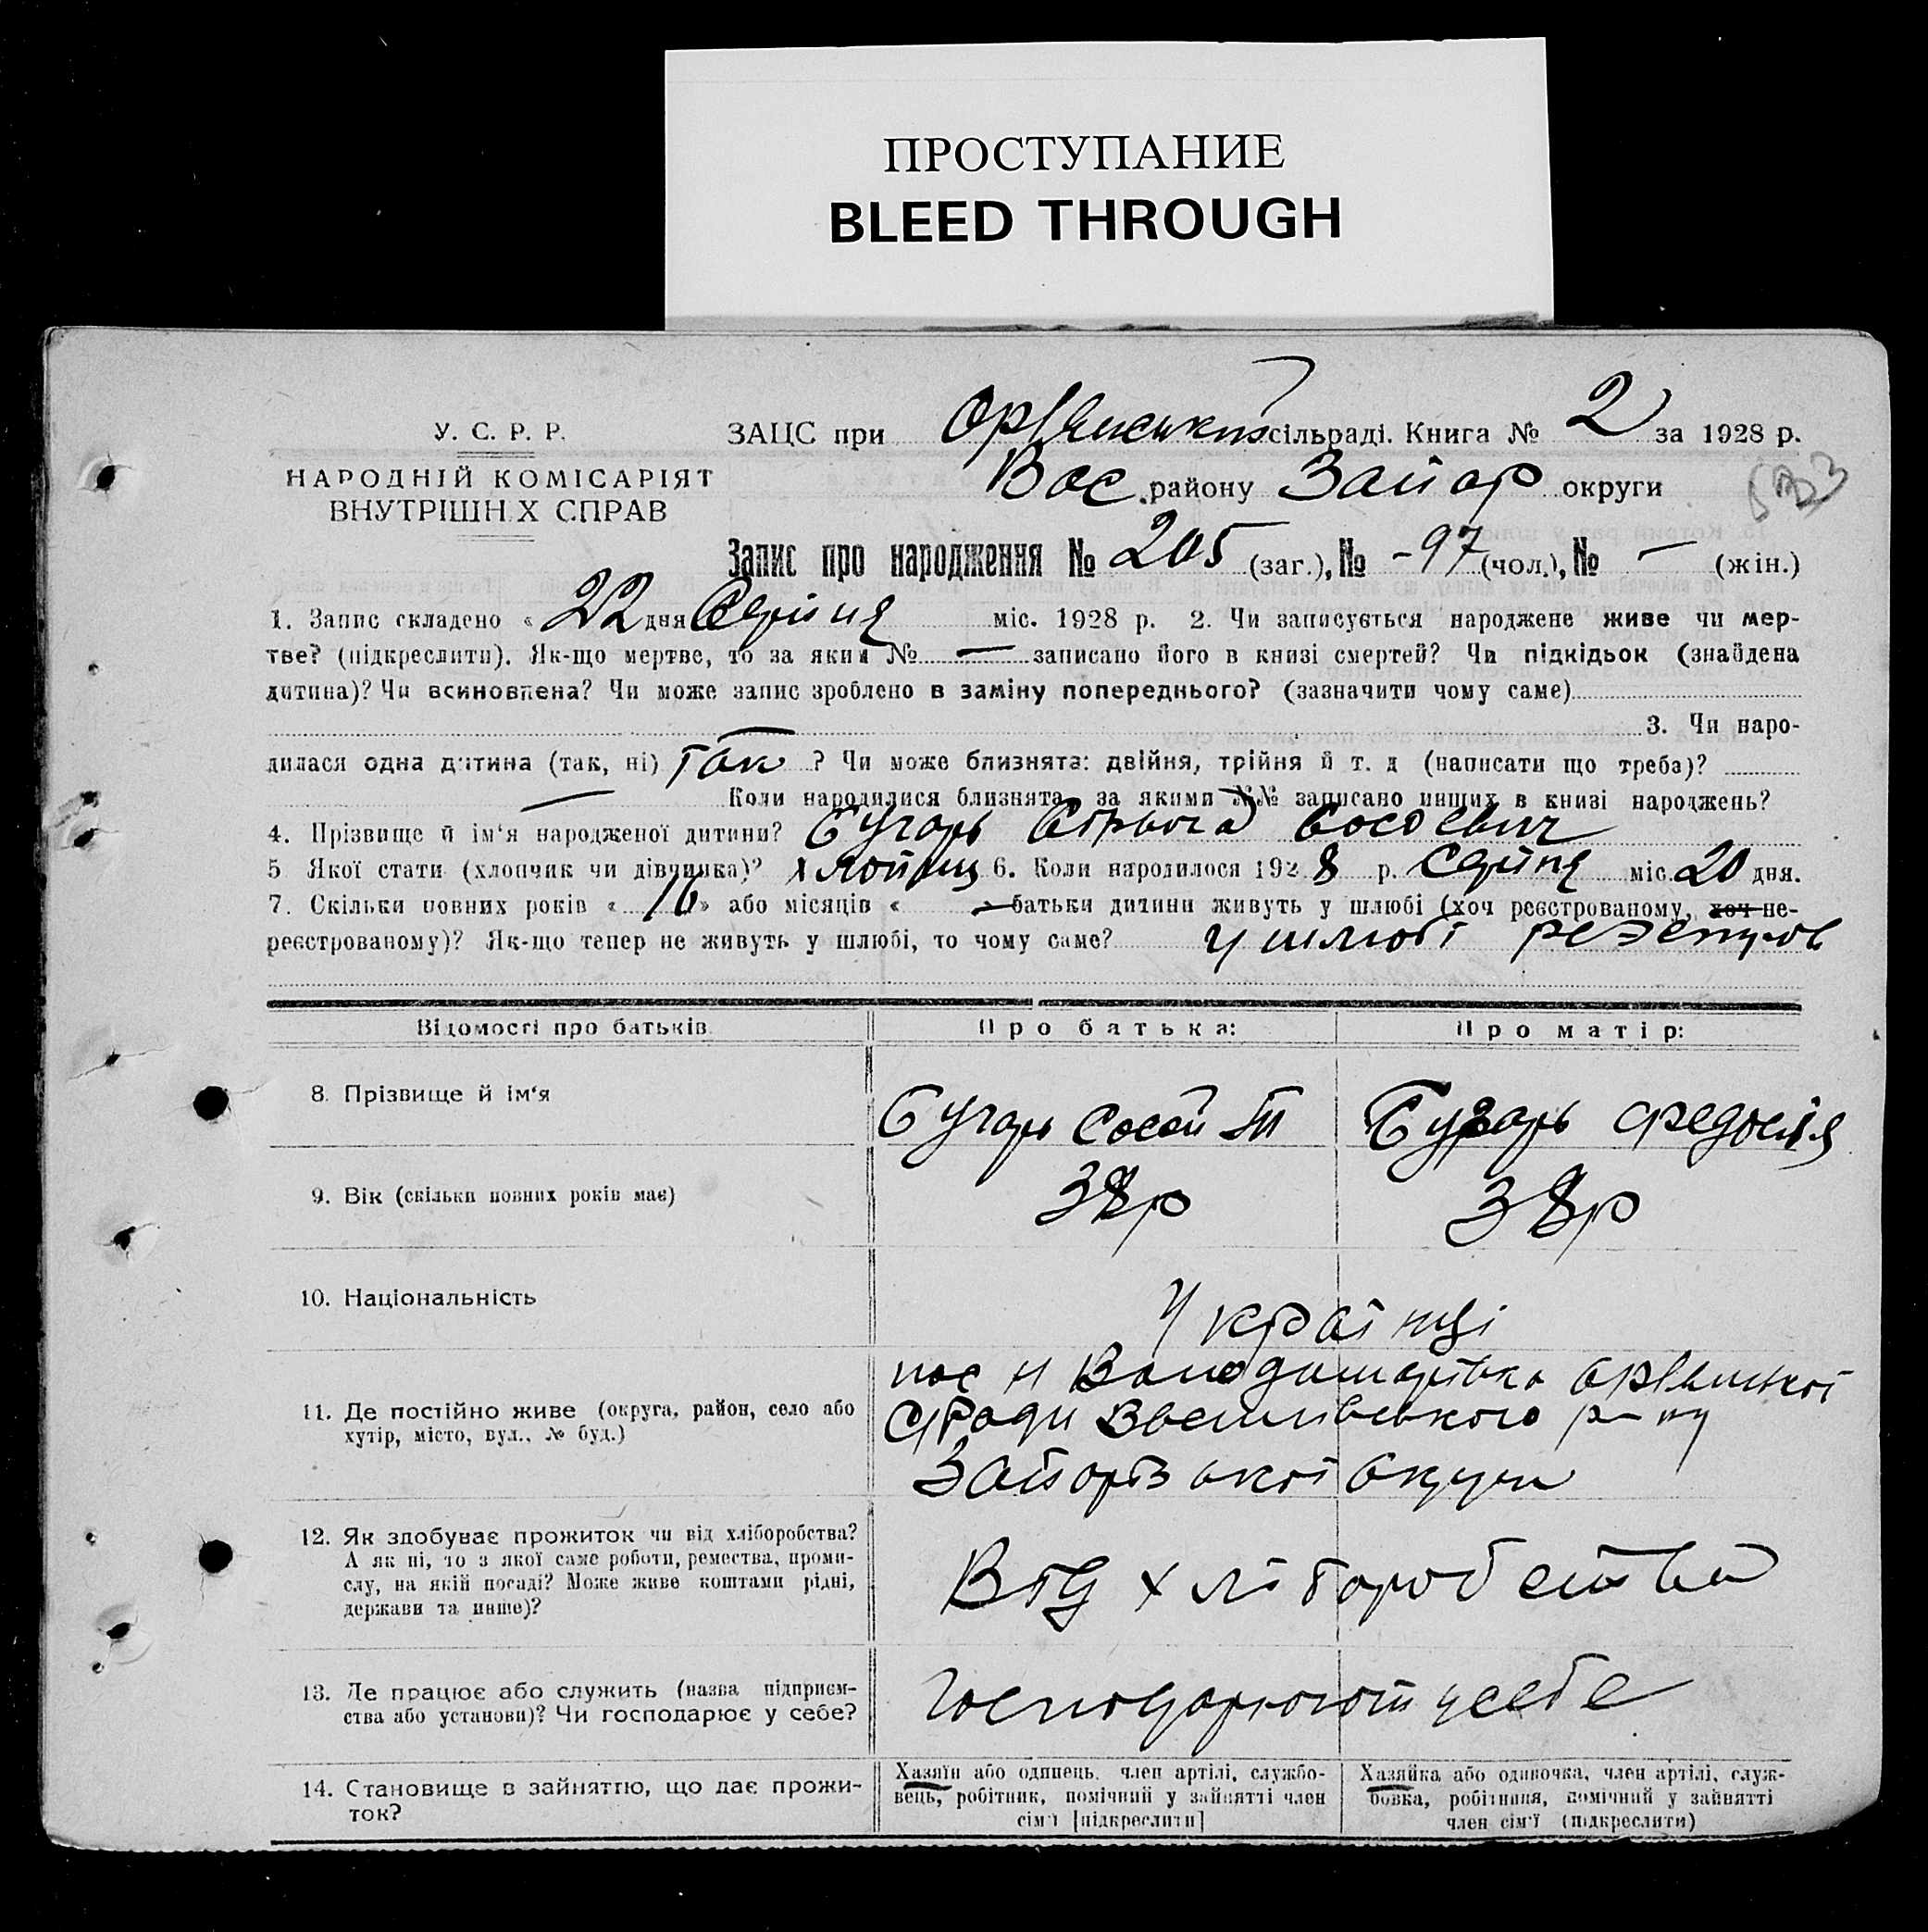 ПРОСТУПАНИЕ
BLEED THROUGH
У. С. Р. Р.
НАРОДНІЙ КОМІСАРІЯТ
ВНУТРІШН.Х СПРАВ
ЗАЦС при сільраді. Книга № 2 за 1928 р.
Вас. району Запор округи
Запис про народження № 205 (заг.), № -97 (чол.), № — (жін.)
1. Запис складено « 22 дня Серпня міс. 1928 р. 2. Чи записується народжене живе чи мер-
тве? (підкреслити). Як-що мертве, то за яким № — записано його в книзі смертей? Чи підкідьок (знайдена
дитина)? Чи всиновлена? Чи може запис зроблено в заміну попереднього? (зазначити чому саме)
3. Чи наро-
дилася одна дитина (так, ні) Так ? Чи може близнята: двійня, трійня й т. д (написати що треба)?
— Коли народилися близнята, за якими №№ записано инших в книзі народжень?
4. Прізвище й ім'я народженої дитини?
5 Якої стати (хлопчик чи дівчинка)? хлопчик 6. Коли народилося 1928 р. Серпня міс. 20 дня.
7. Скільки повних років « 16 » або місяців « » батьки дитини живуть у шлюбі (хоч реєстрованому, хоч не-
реєстрованому)? Як-що тепер не живуть у шлюбі, то чому саме? у шлюбі
Відомості про батьків
Про батька:
Про матір:
8. Прізвище й ім'я
Федосія
9. Вік (скільки повних років має)
38р
38р
10. Національність
Українці
11. Де постійно живе (округа, район, село або
хутір, місто, вул., № буд.)
Запорізької округи
12. Як здобуває прожиток чи від хліборобства?
А як ні, то з якої саме роботи, ремества, проми-
слу, на якій посаді? Може живе коштами рідні,
держави та инше)?
Від хліборобства
13. Де працює або служить (назва підприєм-
ства або установи)? Чи господарює у себе?
Господарюют у себе
14. Становище в зайняттю, що дає прожи-
ток?
Хазяїн або одинець, член артілі, службо-
вець, робітник, помічний у зайнятті член
сім'ї [підкреслити]
Хазяйка або одиночка, член артілі, служ-
бовка, робітниця, помічний у зайнятті
член сім'ї (підкреслити)